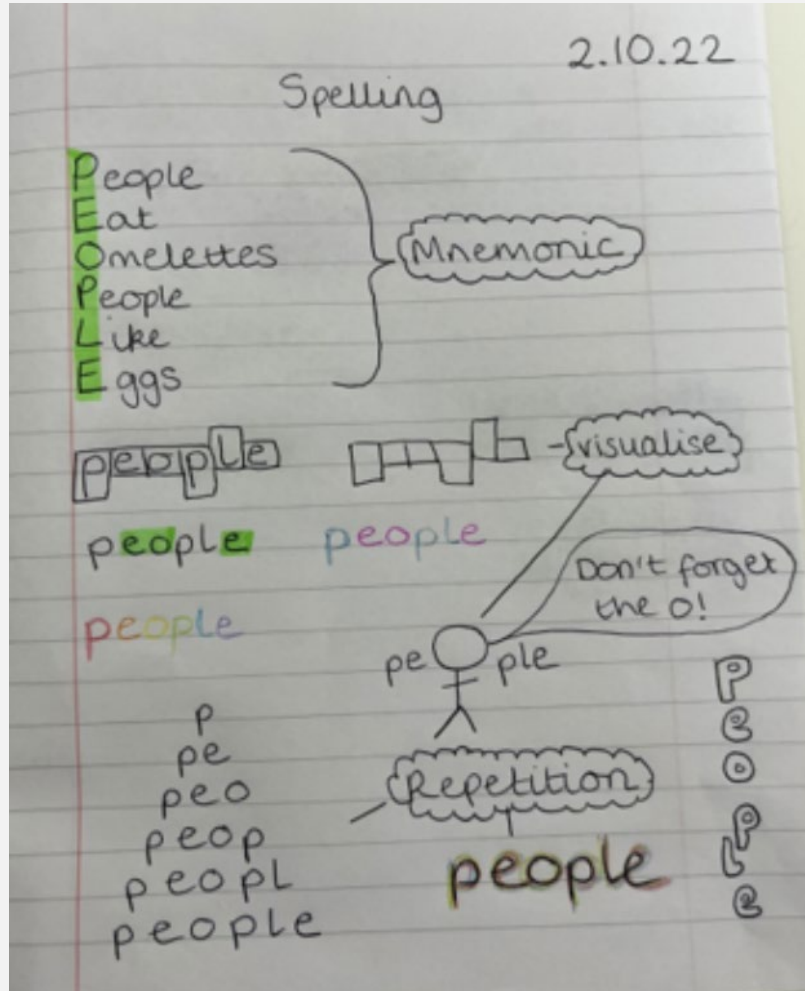 2.10.22
Spelling
People
Eat
Omelettes
People
Like
Eggs
Mnemonic
people
visualise
people people
Don't forget
the o!
people
pe ple
p
pe
peo
peop
peopl
people
Repetition
people
P
e
o
P
L
e